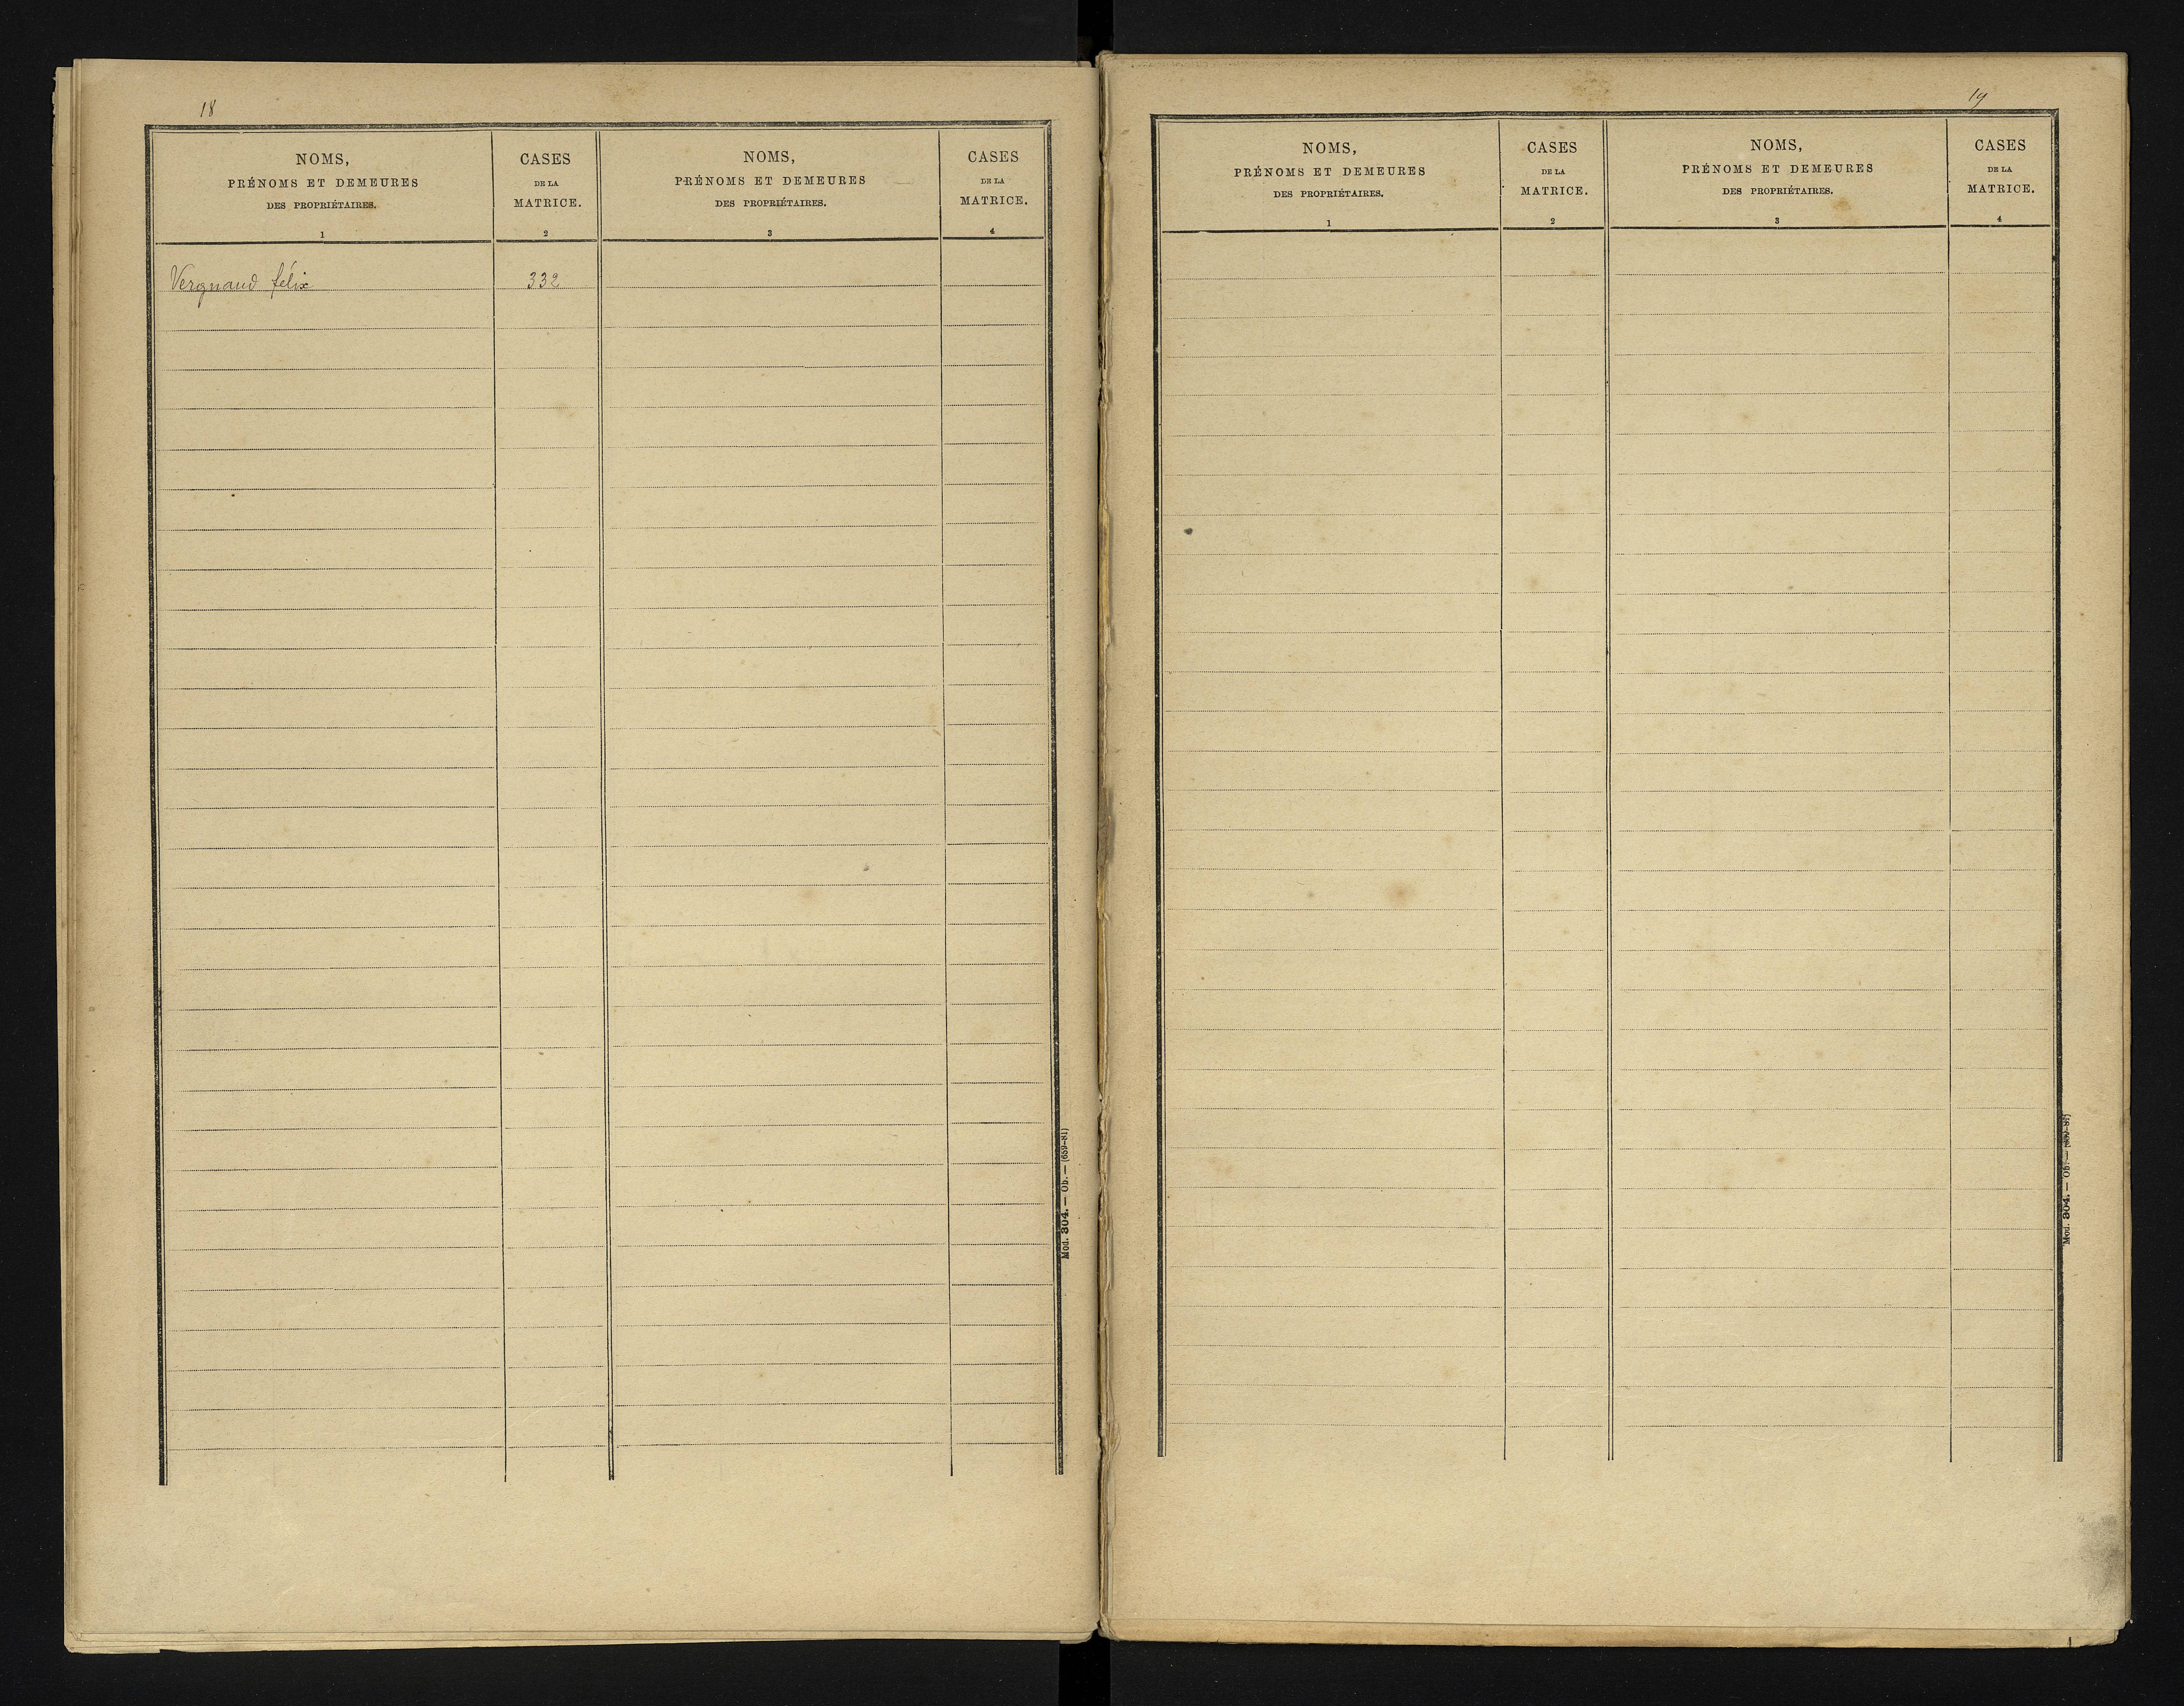 18
NOMS,
PRÉNOMS ET DEMEURES
DES PROPRIÉTAIRES.
1
CASES
DE LA
MATRICE.
2
NOMS,
PRÉNOMS ET DEMEURES
DES PROPRIÉTAIRES.
3
CASES
DE LA
MATRICE.
4
Vergnaud félix
332
Mod. 304. — Ob. — (689-81)
19
NOMS,
PRÉNOMS ET DEMEURES
DES PROPRIÉTAIRES.
1
CASES
DE LA
MATRICE.
2
NOMS,
PRÉNOMS ET DEMEURES
DES PROPRIÉTAIRES.
3
CASES
DE LA
MATRICE.
4
Mod. 304. — Ob. — (689-81)